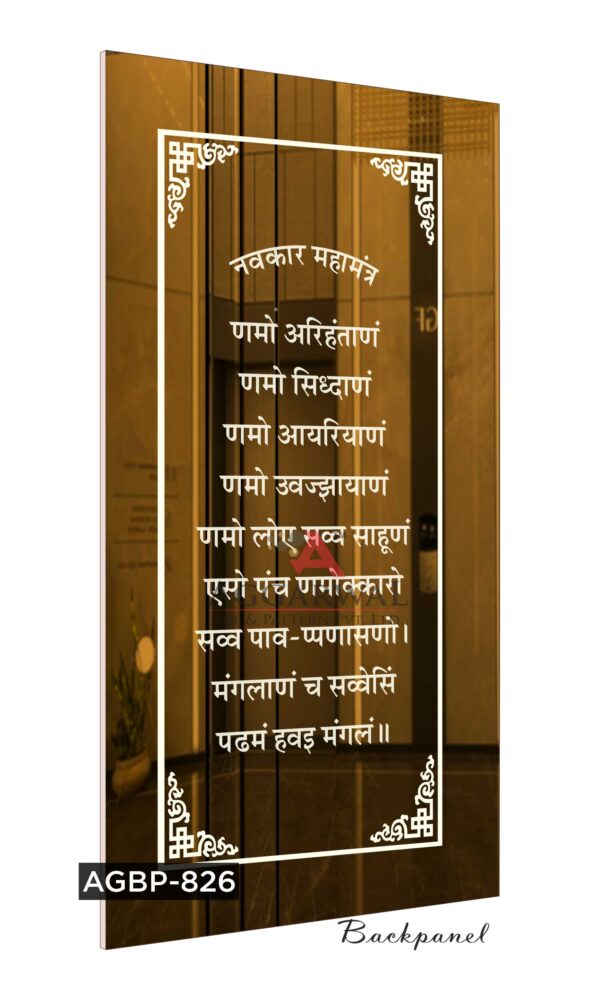 नवकार महामंत्र
णमो अरिहंताणं
णमो सिध्दाणं
णमो आयरियाणं
णमो उवज्झायाणं
णमो लोए सव्व साहूणं
एसो पंच णमोक्कारो
AGGARWAL
& PATTERN PVT. LTD.
सव्व पाव-प्पणासणो।
मंगलाणं च सव्वेसिं
पढमं हवइ मंगलं॥
AGBP-826
Backpanel